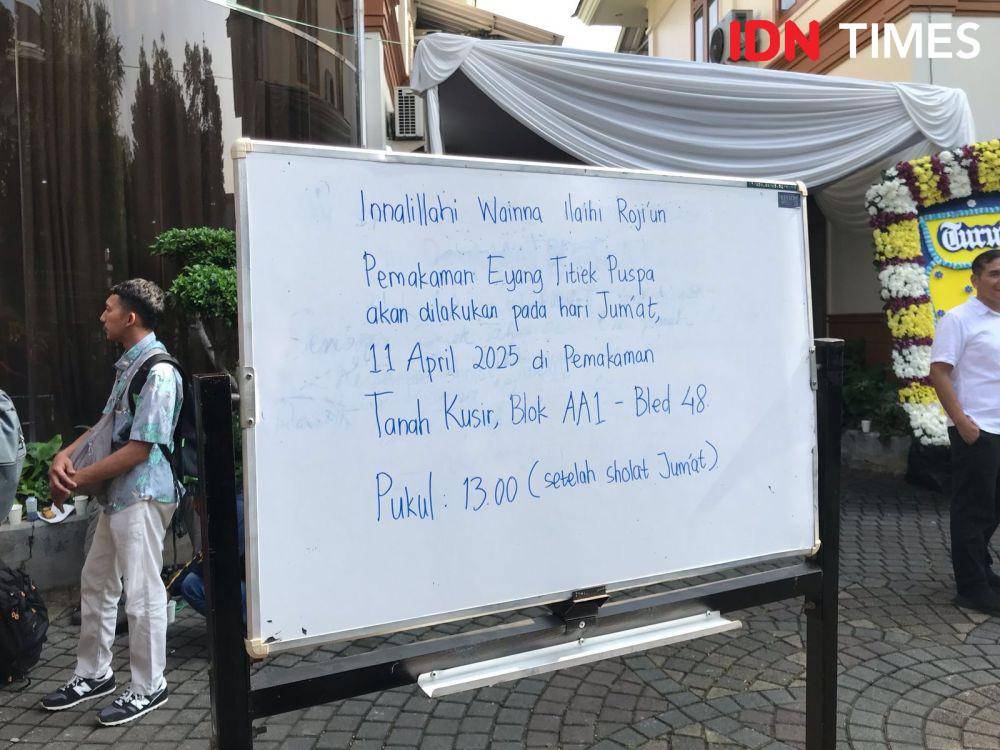 IDN TIMES
Innalillahi Wainna Ilaihi Roji'un
Pemakaman Eyang Titiek Puspa
akan dilakukan pada hari Jum'at,
11 April 2025 di Pemakaman
Tanah Kusir, Blok AA1 - Bled 48.
Pukul : 13.00 (setelah sholat Jum'at).